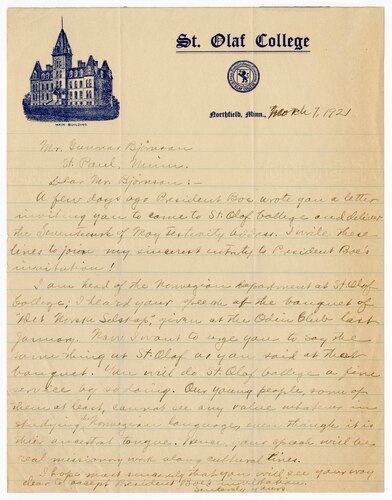 St. Olaf College
MAIN BUILDING
Northfield, Minn., March 7, 1921
Mr. Gunnar Björnson
St. Paul, Minn.
Dear Mr. Björnson:-
A few days ago President Boe wrote you a letter
inviting you to come to St. Olaf College and deliver
the Seventeenth of May festivity address. I write these
lines to join my sincerest entreaty to President Boe's
invitation!
I am head of the Norwegian department at St. Olaf
College; I heard your speech at the banquet of
"Det Norske Selskap," given at the Odin Club last
January. Now I want to urge you to say the
same thing at St. Olaf as you said at that
banquet. You will do St. Olaf College a fine
service by so doing. Our young people, some of
them at least, cannot see any value whatever in
studying the Norwegian Language, even though it is
their ancestral tongue. Hence your speech will be
real missionary work along cultural lines.
I hope most sincerely that you will see your way
clear to accept President Boe's invitation.
Sincerely yours